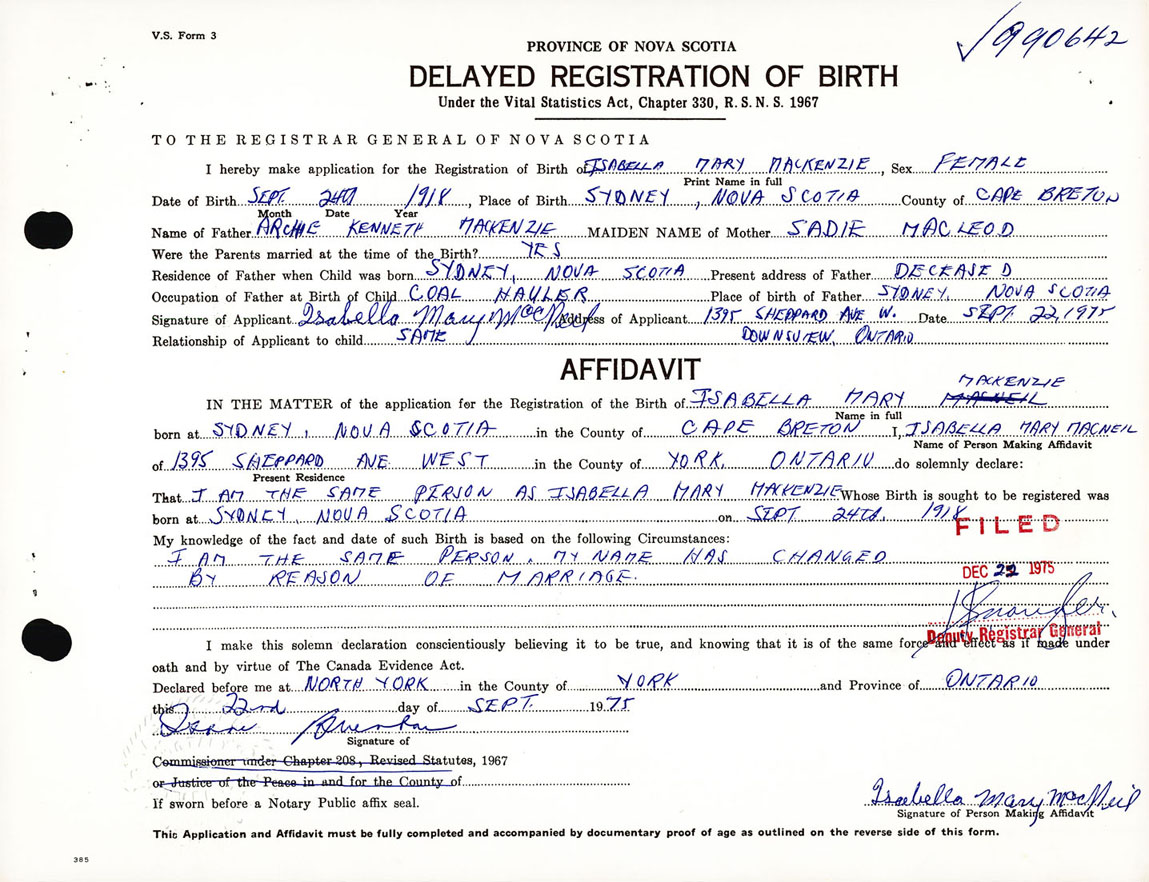 V.S. Form 3
✓990642
PROVINCE OF NOVA SCOTIA
DELAYED REGISTRATION OF BIRTH
Under the Vital Statistics Act, Chapter 330, R.S.N.S. 1967
TO THE REGISTRAR GENERAL OF NOVA SCOTIA
I hereby make application for the Registration of Birth of ISABELLA MARY MACKENZIE, Sex FEMALE
Print Name in full
Date of Birth SEPT. 24TH 1918, Place of Birth SYDNEY, NOVA SCOTIA County of CAPE BRETON
Month Date Year
Name of Father ARCHIE KENNETH MACKENZIE MAIDEN NAME of Mother SADIE MACLEOD
Were the Parents married at the time of the Birth? YES
Residence of Father when Child was born SYDNEY, NOVA SCOTIA Present address of Father DECEASED
Occupation of Father at Birth of Child COAL HAULER Place of birth of Father SYDNEY, NOVA SCOTIA
Signature of Applicant Isabella Mary MacNeil Address of Applicant 1395 SHEPPARD AVE W. Date SEPT. 22, 1975
Relationship of Applicant to child SAME DOWNSVIEW, ONTARIO
AFFIDAVIT
MACKENZIE
IN THE MATTER of the application for the Registration of the Birth of ISABELLA MARY MACNEIL
Name in full
born at SYDNEY, NOVA SCOTIA in the County of CAPE BRETON I, ISABELLA MARY MACNEIL
Name of Person Making Affidavit
of 1395 SHEPPARD AVE WEST in the County of YORK, ONTARIO do solemnly declare:
Present Residence
That I AM THE SAME PERSON AS ISABELLA MARY MACKENZIE Whose Birth is sought to be registered was
born at SYDNEY, NOVA SCOTIA on SEPT. 24TH, 1918
FILED
My knowledge of the fact and date of such Birth is based on the following Circumstances:
I AM THE SAME PERSON. MY NAME HAS CHANGED
DEC 22 1975
BY REASON OF MARRIAGE.
Deputy Registrar General
I make this solemn declaration conscientiously believing it to be true, and knowing that it is of the same force and effect as if made under
oath and by virtue of The Canada Evidence Act.
Declared before me at NORTH YORK in the County of YORK and Province of ONTARIO
this 22nd day of SEPT. 1975
Signature of
Commissioner under Chapter 208, Revised Statutes, 1967
or Justice of the Peace in and for the County of
If sworn before a Notary Public affix seal.
Isabella Mary MacNeil
Signature of Person Making Affidavit
This Application and Affidavit must be fully completed and accompanied by documentary proof of age as outlined on the reverse side of this form.
385